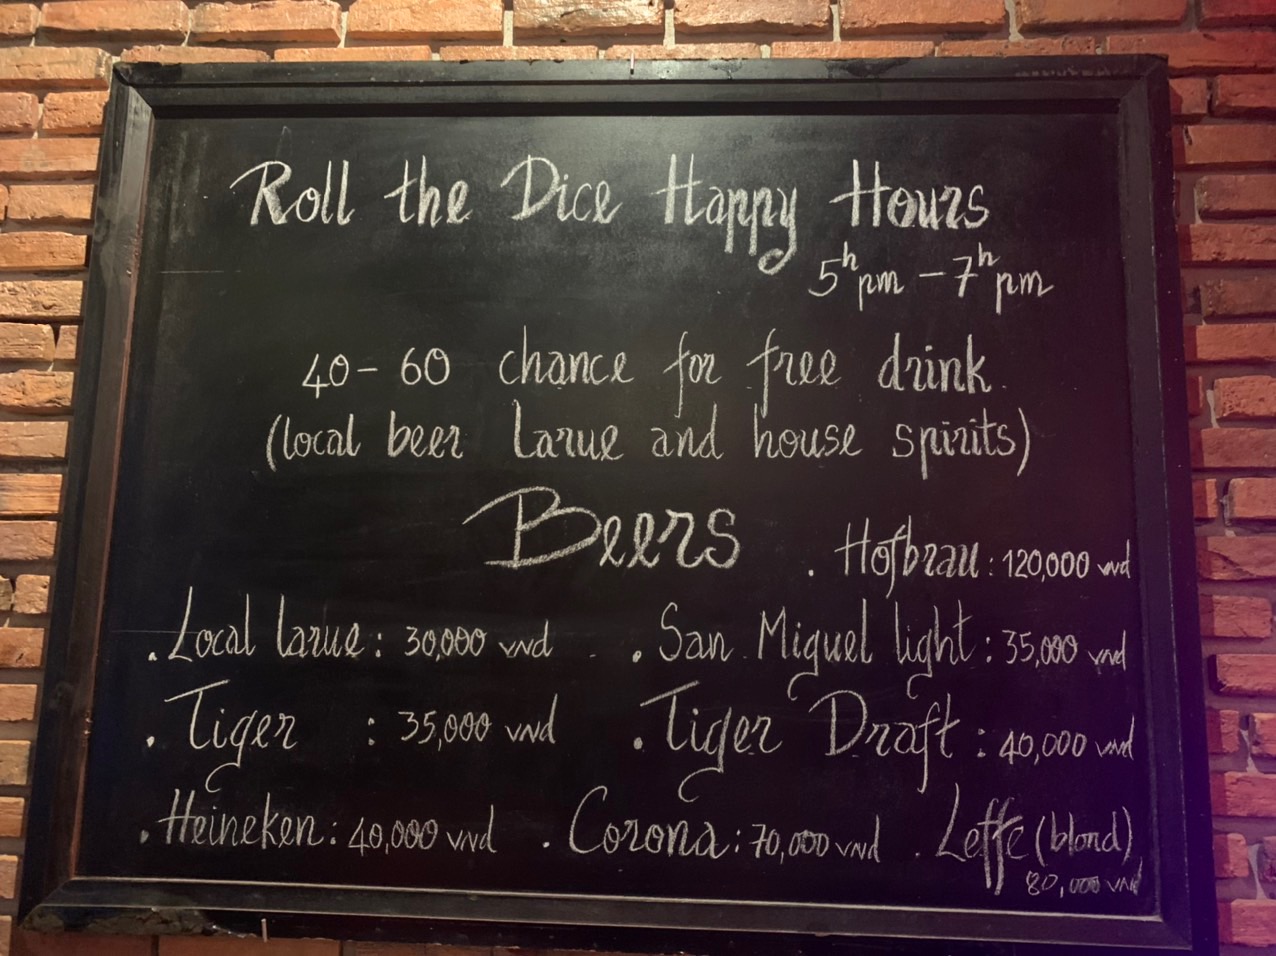 Roll the Dice Happy Hours
5h pm – 7h pm
40 – 60 chance for free drink
(local beer Larue and house spirits)
Beers
. Hofbrau : 120,000 vnd
. Local larue : 30,000 vnd
. San Miguel light : 35,000 vnd
. Tiger : 35,000 vnd
. Tiger Draft : 40,000 vnd
. Heineken : 40,000 vnd
. Corona : 70,000 vnd
. Leffe (blond)
80,000 vnd